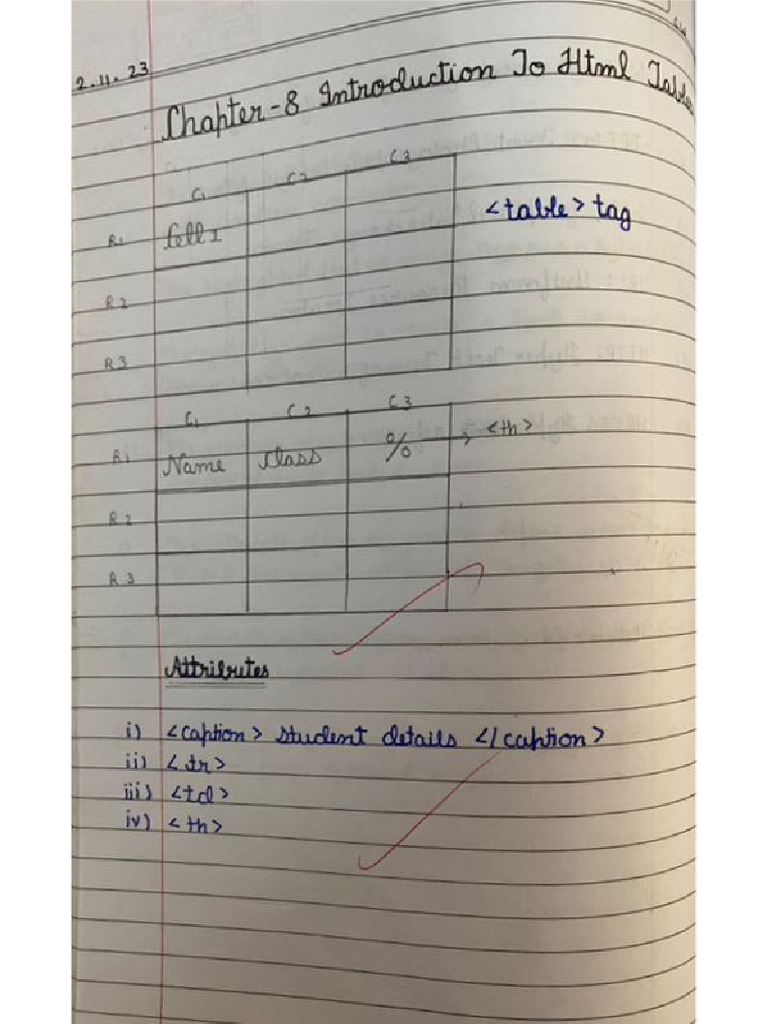 2.11.23
Chapter-8 Introduction To Html Table
C1 C2 C3
R1 Cell 1
<table> tag
R2
R3
C1 C2 C3
R1 Name Class % → <th>
R2
R3
Attributes
i) <caption> student details </caption>
ii) <tr>
iii) <td>
iv) <th>